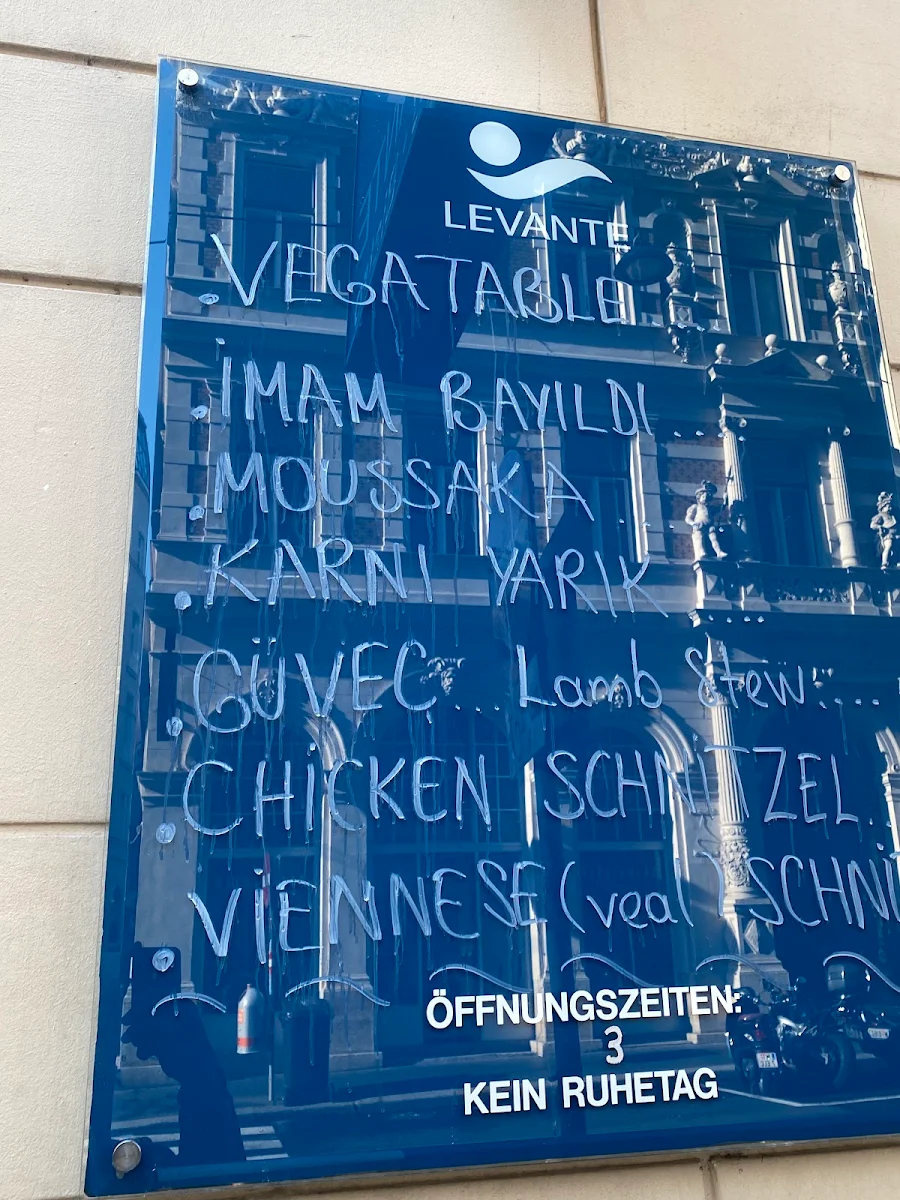 LEVANTE
. VEGATABLE .
. İMAM BAYILDI ....
. MOUSSAKA ..
. KARNI YARIK ....
. GÜVEÇ... Lamb Stew.....
. CHiCKEN SCHNITZEL.
. ViENNESE (veal) SCHNi
ÖFFNUNGSZEITEN:
3
KEIN RUHETAG